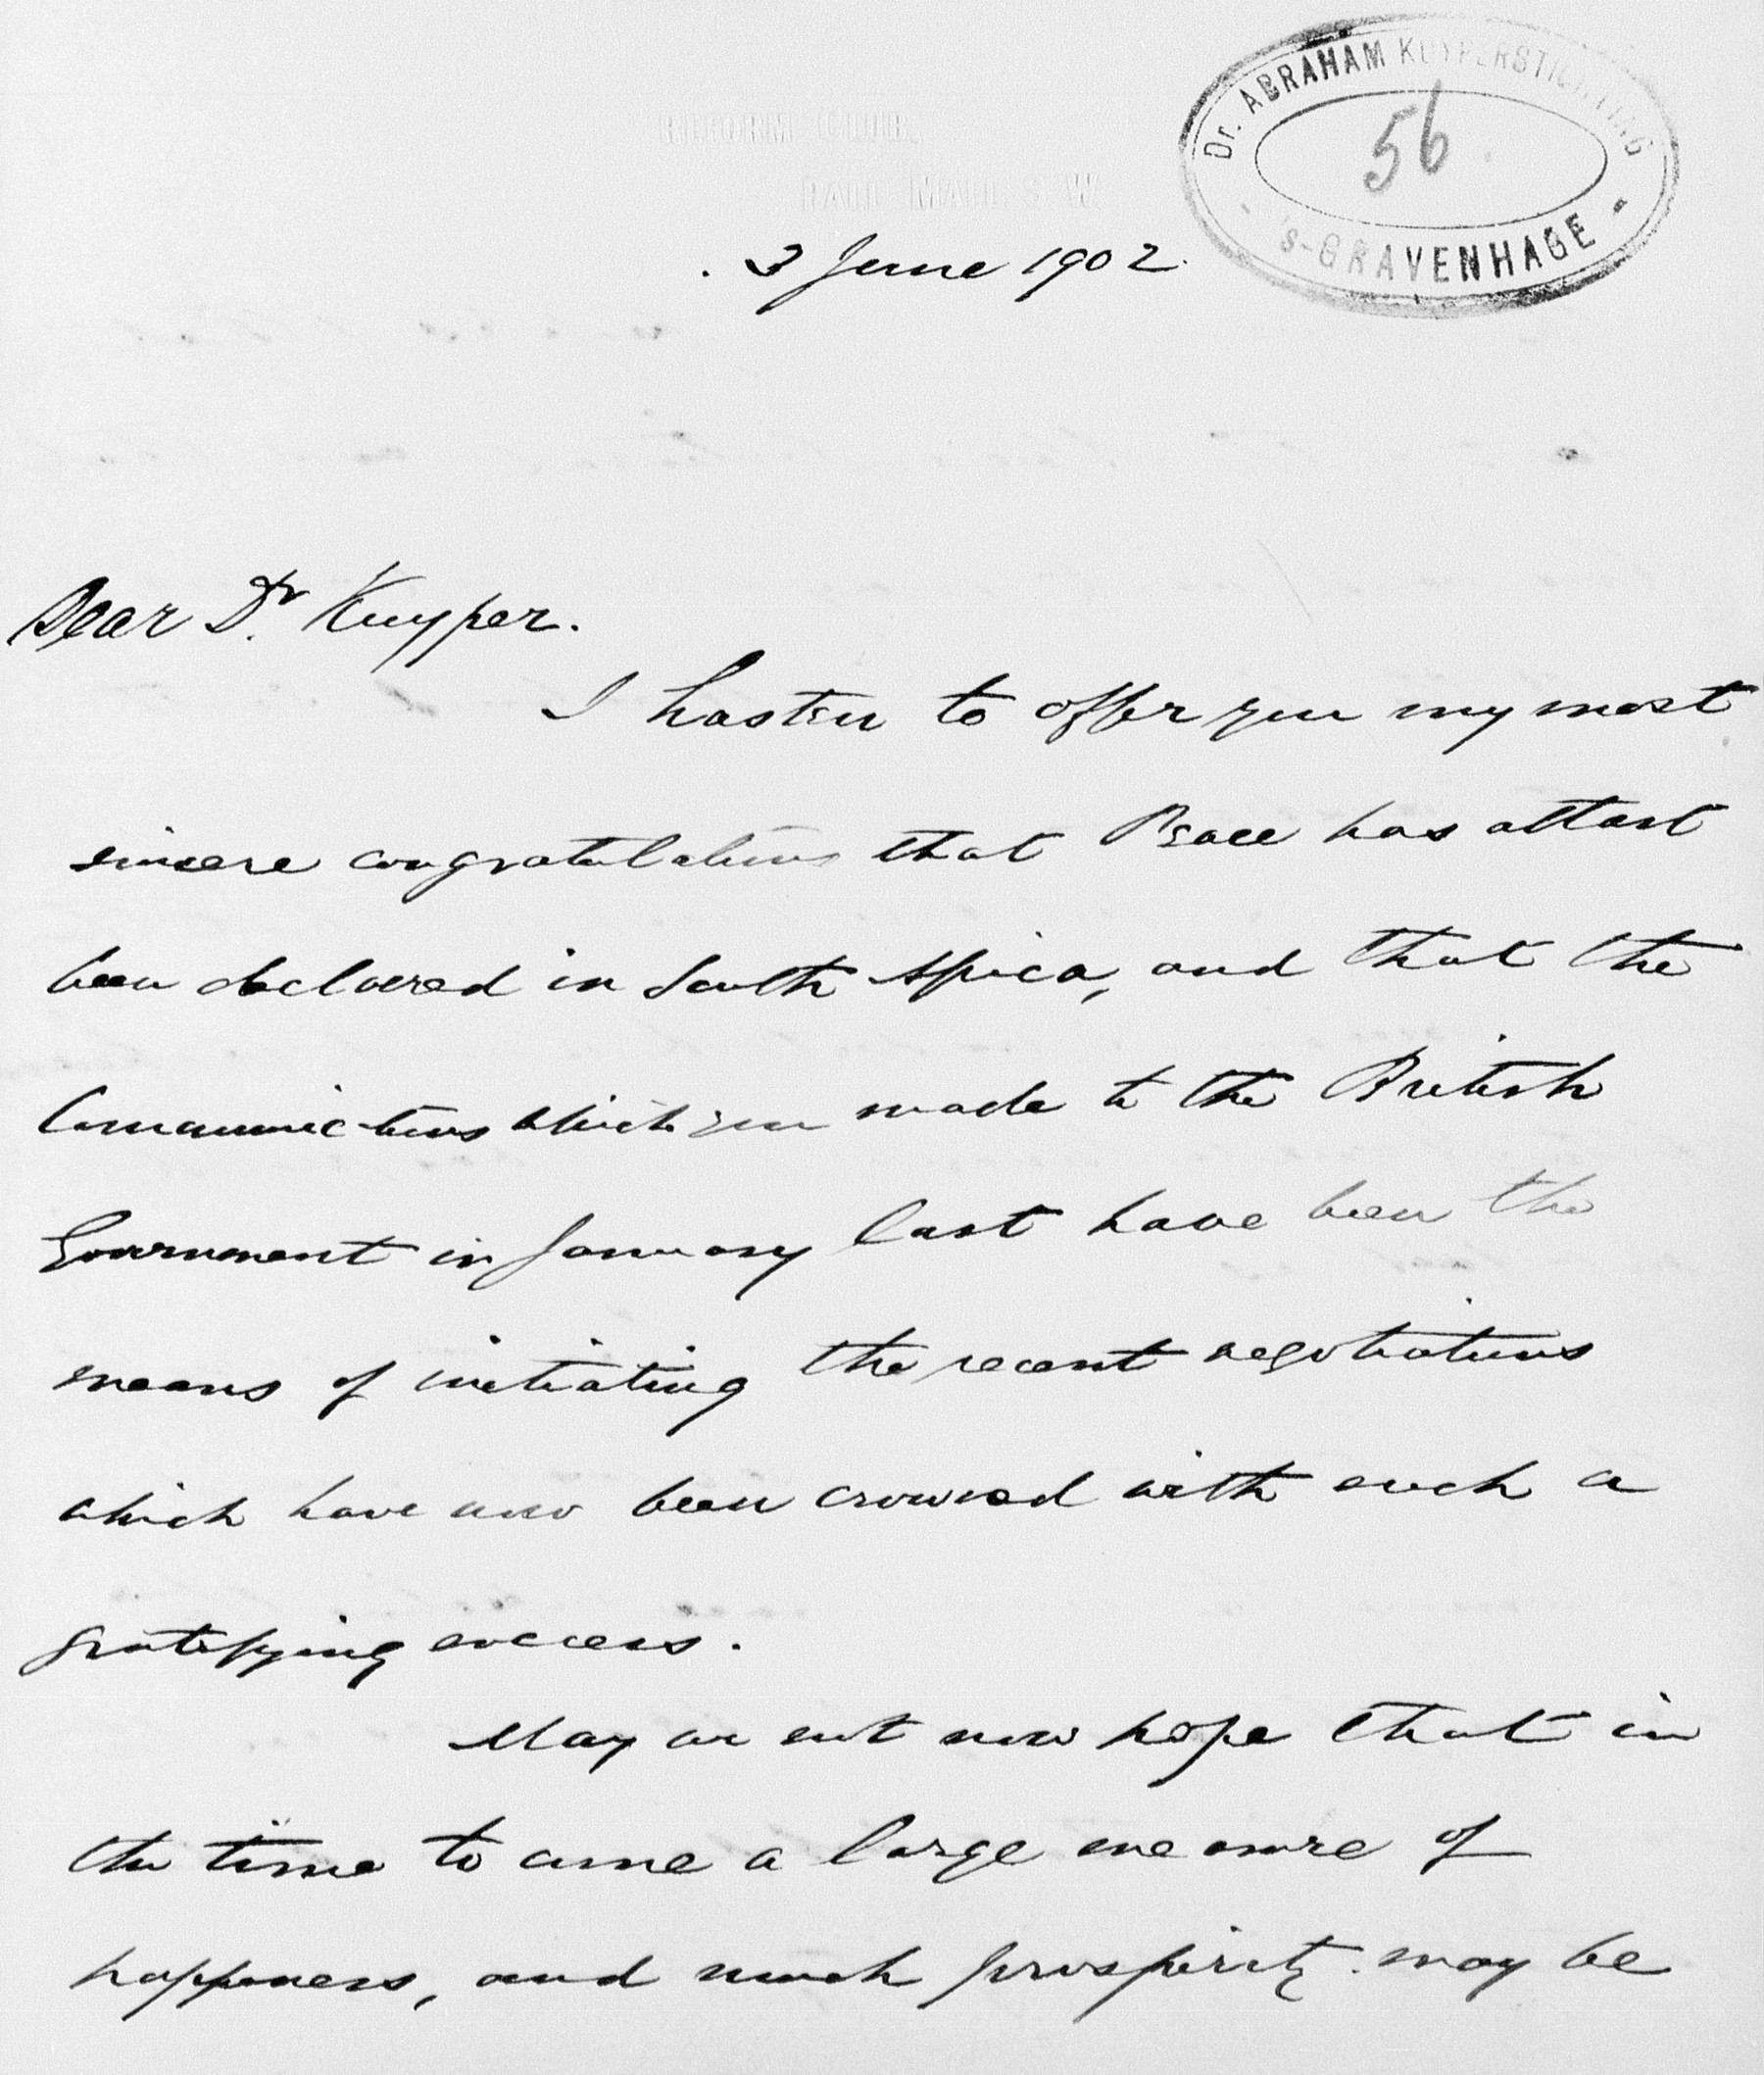 REFORM CLUB.
PALL MALL. S. W.
Dr. ABRAHAM KUYPERSTICHTING
56
'S-GRAVENHAGE
3 June 1902.
Dear Dr. Kuyper.
I hasten to offer you my most
sincere congratulations that Peace has attast
been declared in South Africa, and that the
Communications which you made to the British
Government in January last have been the
means of initiating the recent negotiations
which have now been crowned with such a
gratifying success.
May we not now hope that in
the time to come a large measure of
happiness, and much prosperity may be